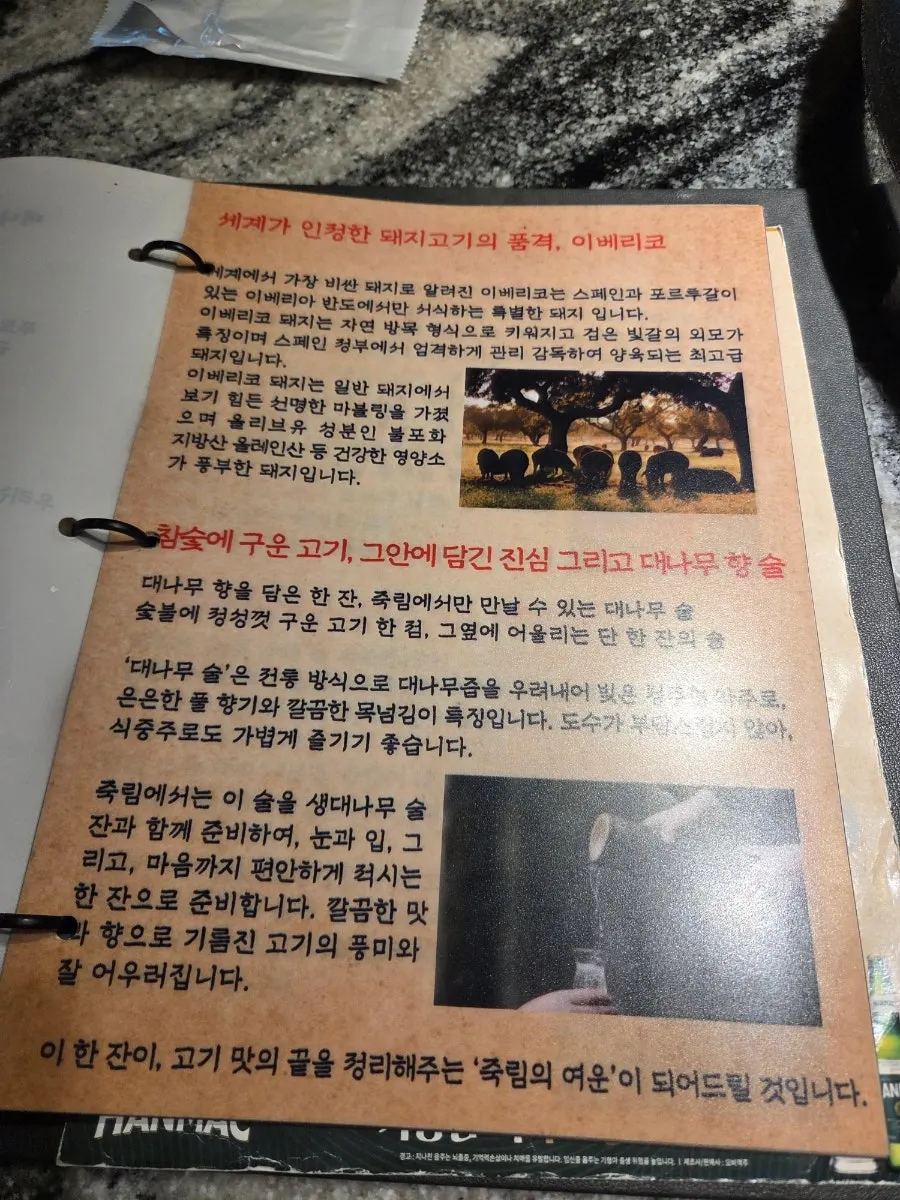 세계가 인정한 돼지고기의 품격, 이베리코
세계에서 가장 비싼 돼지로 알려진 이베리코는 스페인과 포르투갈이
있는 이베리아 반도에서만 서식하는 특별한 돼지 입니다.
이베리코 돼지는 자연 방목 형식으로 키워지고 검은 빛깔의 외모가
특징이며 스페인 정부에서 엄격하게 관리 감독하여 양육되는 최고급
돼지입니다.
이베리코 돼지는 일반 돼지에서
보기 힘든 선명한 마블링을 가졌
으며 올리브유 성분인 불포화
지방산 올레인산 등 건강한 영양소
가 풍부한 돼지입니다.
참숯에 구운 고기, 그안에 담긴 진심 그리고 대나무 향 술
대나무 향을 담은 한 잔, 죽림에서만 만날 수 있는 대나무 술
숯불에 정성껏 구운 고기 한 점, 그옆에 어울리는 단 한 잔의 술
'대나무 술'은 전통 방식으로 대나무즙을 우려내어 빚은
은은한 풀 향기와 깔끔한 목넘김이 특징입니다. 도수가 부담스럽지 않아,
식중주로도 가볍게 즐기기 좋습니다.
죽림에서는 이 술을 생대나무 술
잔과 함께 준비하여, 눈과 입, 그
리고, 마음까지 편안하게 적시는
한 잔으로 준비합니다. 깔끔한 맛
과 향으로 기름진 고기의 풍미와
잘 어우러집니다.
이 한 잔이, 고기 맛의 끝을 정리해주는 '죽림의 여운'이 되어드릴 것입니다.
HANMAC
경고 : 지나친 음주는 뇌졸중, 기억력손상이나 치매를 유발합니다. 임신중 음주는 기형아 출생 위험을 높입니다. | 제조사/판매사 : 오비맥주